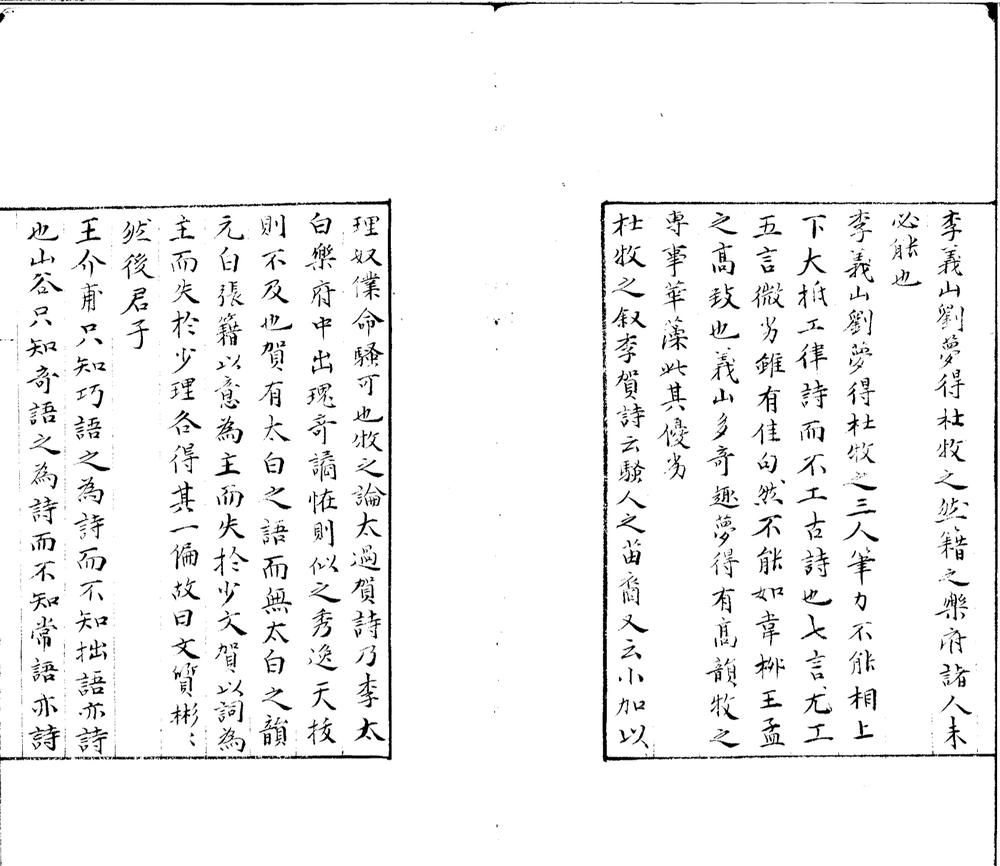 李義山劉夢得杜牧之然籍之樂府諸人未
必能也
李義山劉夢得杜牧之三人筆力不能相上
下大抵工律詩而不工古詩也七言尤工
五言微劣雖有佳句然不能如韋柳王孟
之高致也義山多奇趣夢得有高韻牧之
專事華藻此其優劣
杜牧之叙李賀詩云騷人之苗裔又云小加以
理奴僕命騷可也牧之論太過賀詩乃李太
白樂府中出瑰奇譎怪則似之秀逸天拔
則不及也賀有太白之語而無太白之韻
元白張籍以意為主而失於少文賀以詞為
主而失於少理各得其一偏故曰文質彬〻
然後君子
王介甫只知巧語之為詩而不知拙語亦詩
也山谷只知奇語之為詩而不知常語亦詩